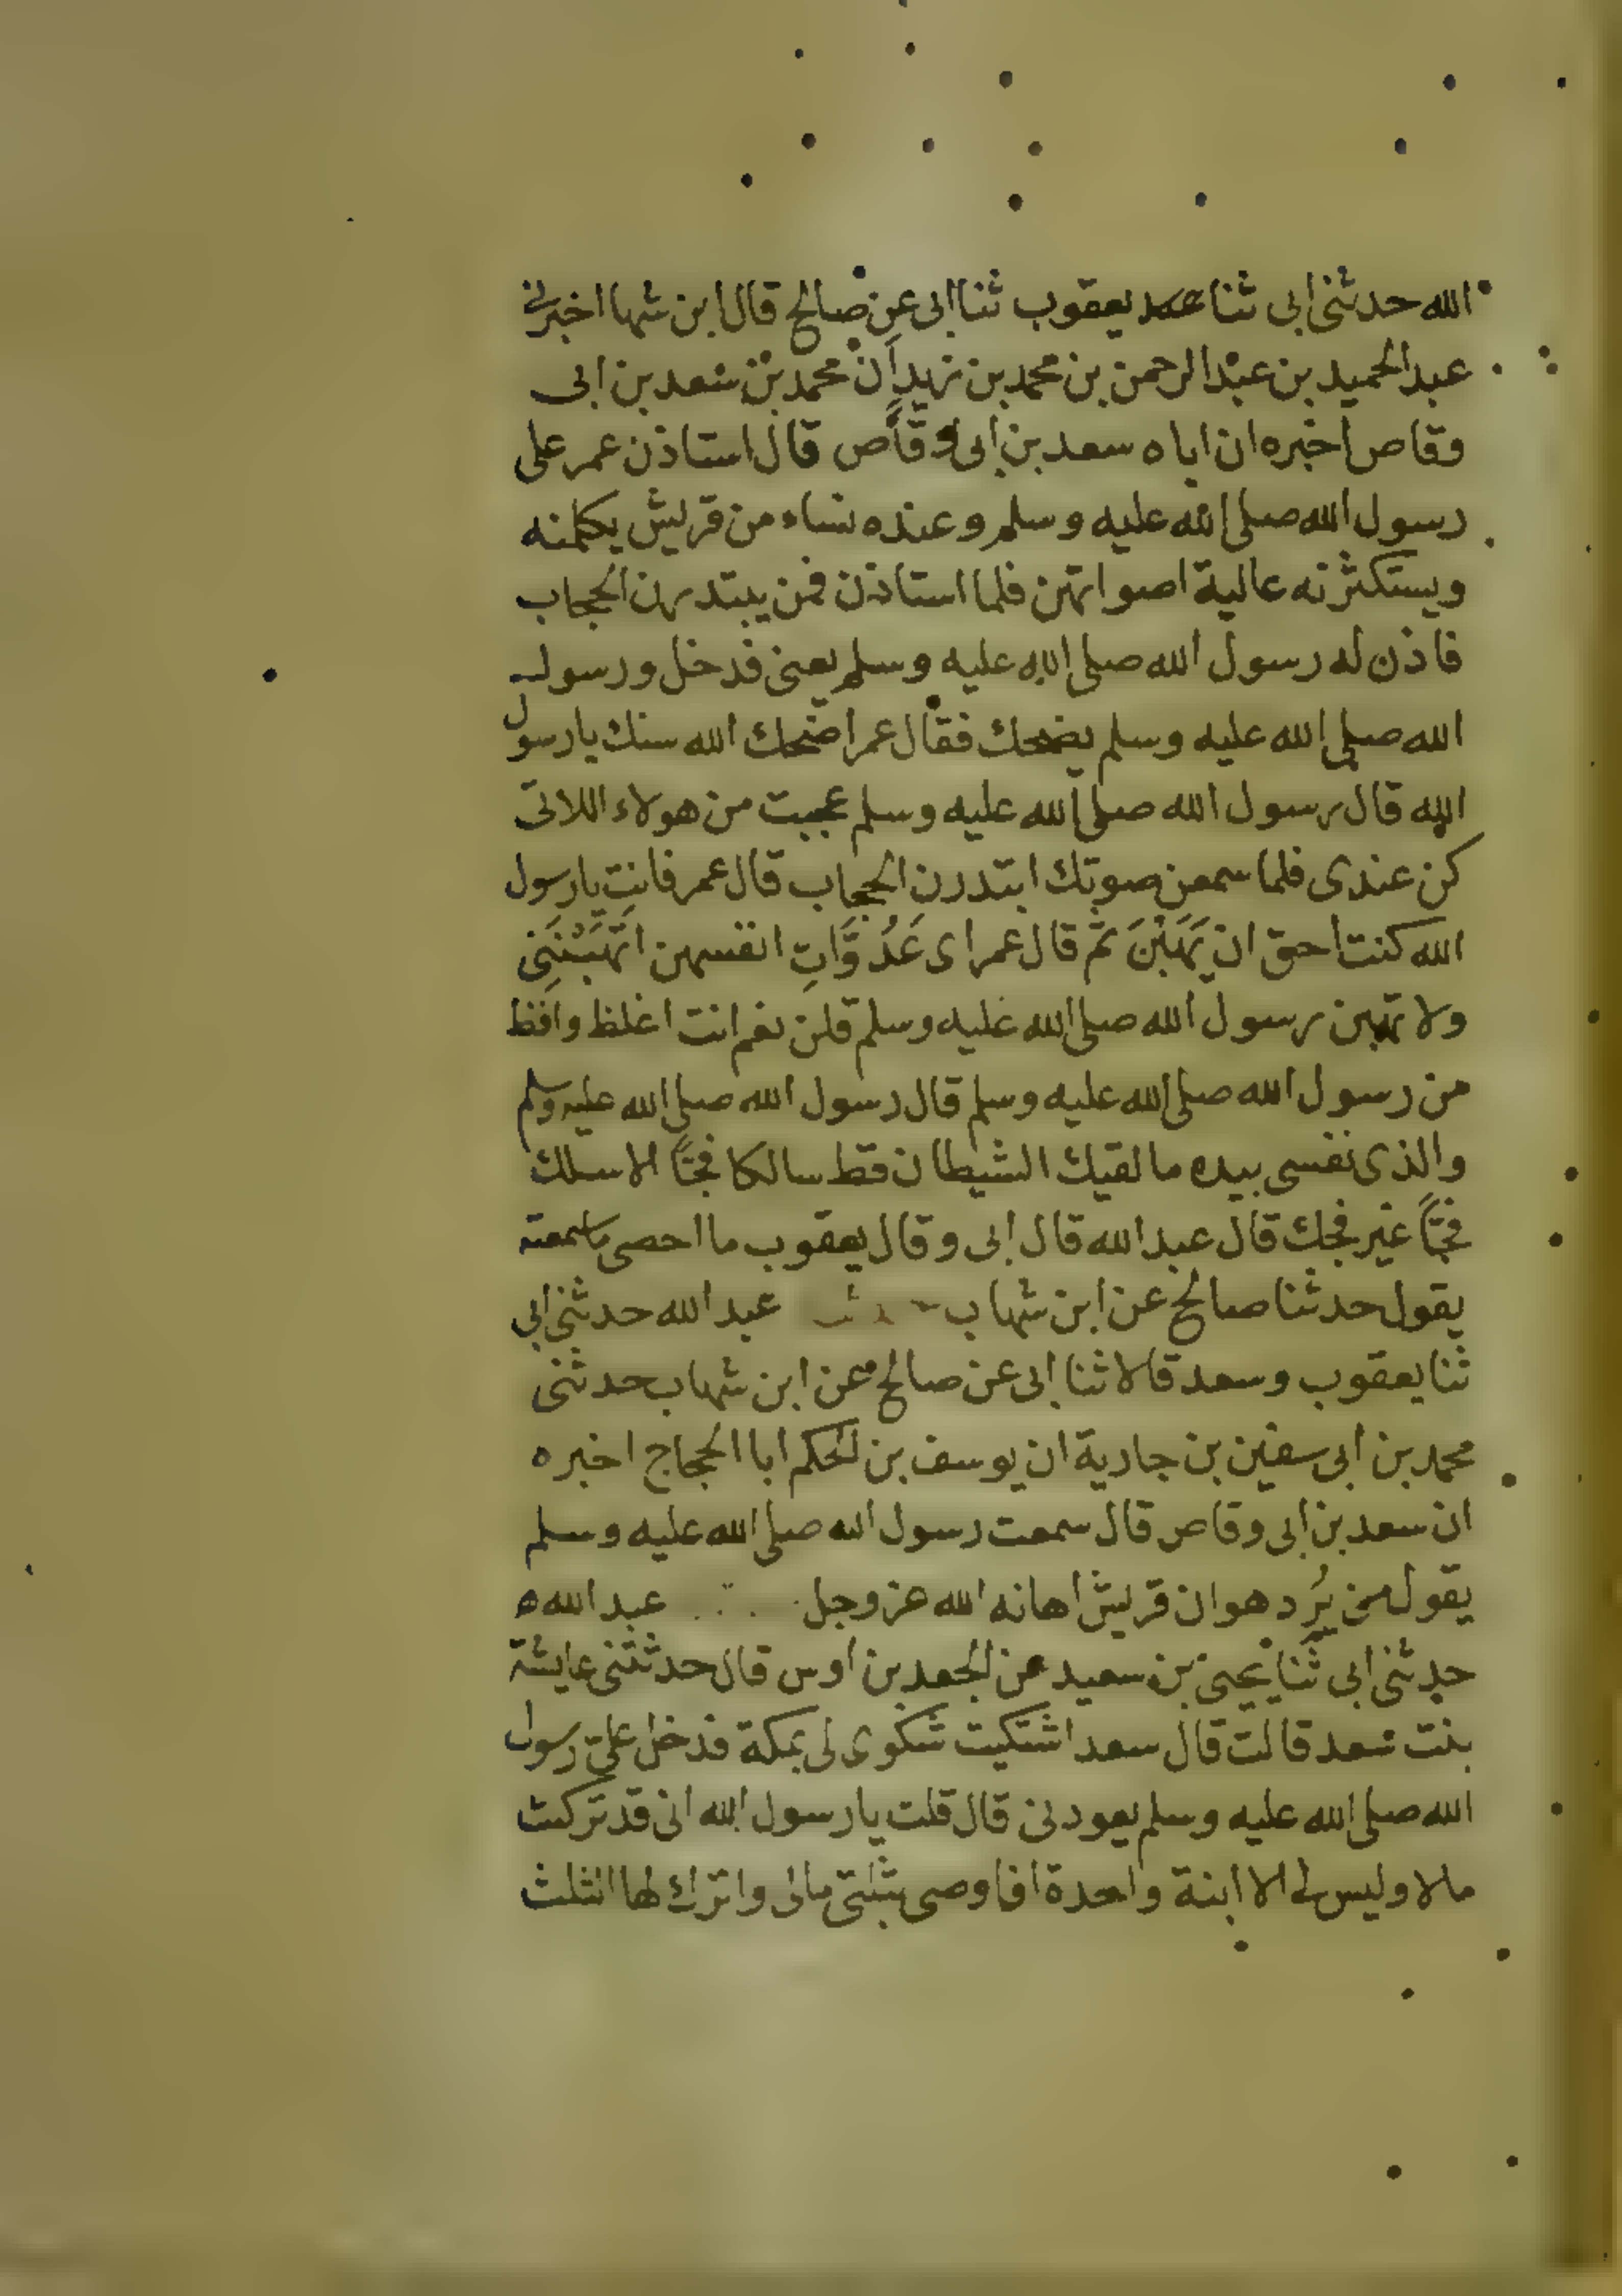 الله حدثنى ابى ثنا يعقوب ثنا ابى عن صالح قال ابن شها اخبرنى
عبد الحميد بن عبد الرحمن بن محمد بن زيد ان محمد بن سعد بن ابى
وقاص اخبره ان اباه سعد بن ابى وقاص قال استاذن عمر على
رسول الله صلى الله عليه وسلم وعنده نساء من قريش يكلمنه
ويستكثرنه عالية اصواتهن فلما استاذن قمن يبتدرن الحجاب
فاذن له رسول الله صلى الله عليه وسلم يعنى فدخل ورسول
الله صلى الله عليه وسلم يضحك فقال عمر اضحك الله سنك يا رسول
الله قال رسول الله صلى الله عليه وسلم عجبت من هولاء اللاتى
كن عندى فلما سمعن صوتك ابتدرن الحجاب قال عمر فانت يا رسول
الله كنت احق ان يَهَبْنَ ثم قال عمر اى عَدُوَّاتِ انفسهن اتَهَبْنَنِى
ولا تهبن رسول الله صلى الله عليه وسلم قلن نعم انت اغلظ وافظ
من رسول الله صلى الله عليه وسلم قال رسول الله صلى الله عليه وسلم
والذى نفسى بيده ما لقيك الشيطان قط سالكا فجًّا الا سلك
فجًّا غير فجك قال عبد الله قال ابى وقال يعقوب ما احصى ما سمعته
يقول حدثنا صالح عن ابن شهاب عبد الله حدثنى ابى
ثنا يعقوب وسعد قالا ثنا ابى عن صالح عن ابن شهاب حدثنى
محمد بن ابى سفين بن جارية ان يوسف بن الحكم ابا الحجاج اخبره
ان سعد بن ابى وقاص قال سمعت رسول الله صلى الله عليه وسلم
يقول من يُرِد هوان قريش اهانه الله عز وجل عبد الله
حدثنى ابى ثنا يحيى بن سعيد عن الجعد بن اوس قال حدثتنى عايشة
بنت سعد قالت قال سعد اشتكيت شكوى لى بمكة فدخل علىّ رسول
الله صلى الله عليه وسلم يعودنى قال قلت يا رسول الله انى قد تركت
مالا وليس لى الا ابنة واحدة افاوصى بثلثى مالى واترك لها الثلث